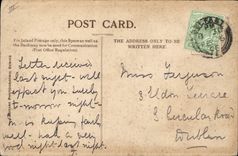 POST CARD.
For Inland Postage only, this Space as well as
the Back may now be used for Communication
(Post Office Regulation)
THE ADDRESS ONLY TO BE
WRITTEN HERE
Letter received
last night - will
expect you
to-morrow night -
M is keeping fairly
well - had a very
good night last night.
Miss Ferguson
3 Eldon Terrace
S. Circular Road
Dublin